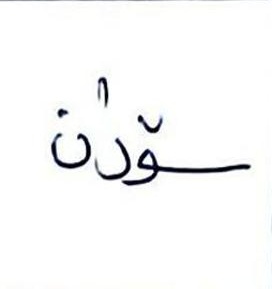 سۆران